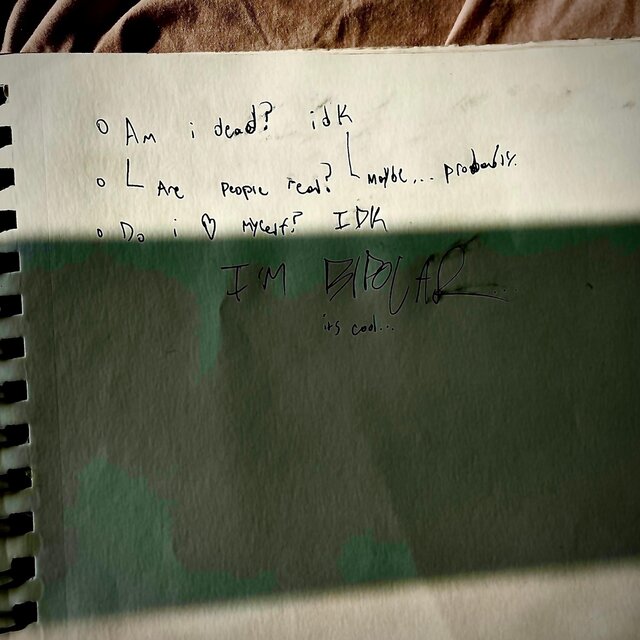 o Am i dead? idK
o Are people real? maybe... probably.
o Do i ♡ myself? IDK
I'M BIPOLAR...
its cool...